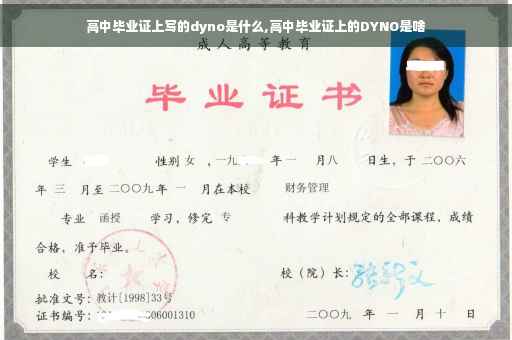 高中毕业证上写的dyno是什么,高中毕业证上的DYNO是啥
成人高等教育
毕业证书
学生 性别 女 ,一九 年一 月八 日生,于二〇〇六
年 三 月至二〇〇九年 一 月在本校 财务管理
专业 函授 学习,修完 专 科教学计划规定的全部课程,成绩
合格,准予毕业。
校 名: 校(院)长:
批准文号:教计[1998]33号
证书编号: 06001310 二〇〇九 年 一 月 十 日